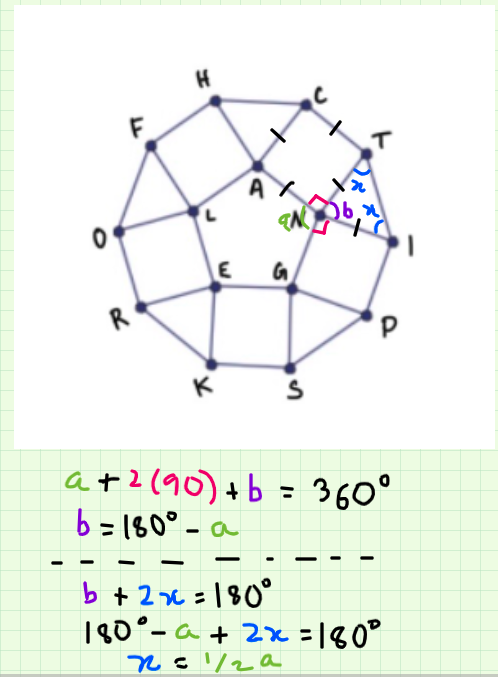 H
C
F
T
A
x
aN
b
x
L
O
I
E
G
R
P
K
S
a + 2(90) + b = 360°
b = 180° - a
b + 2x = 180°
180° - a + 2x = 180°
x = 1/2 a